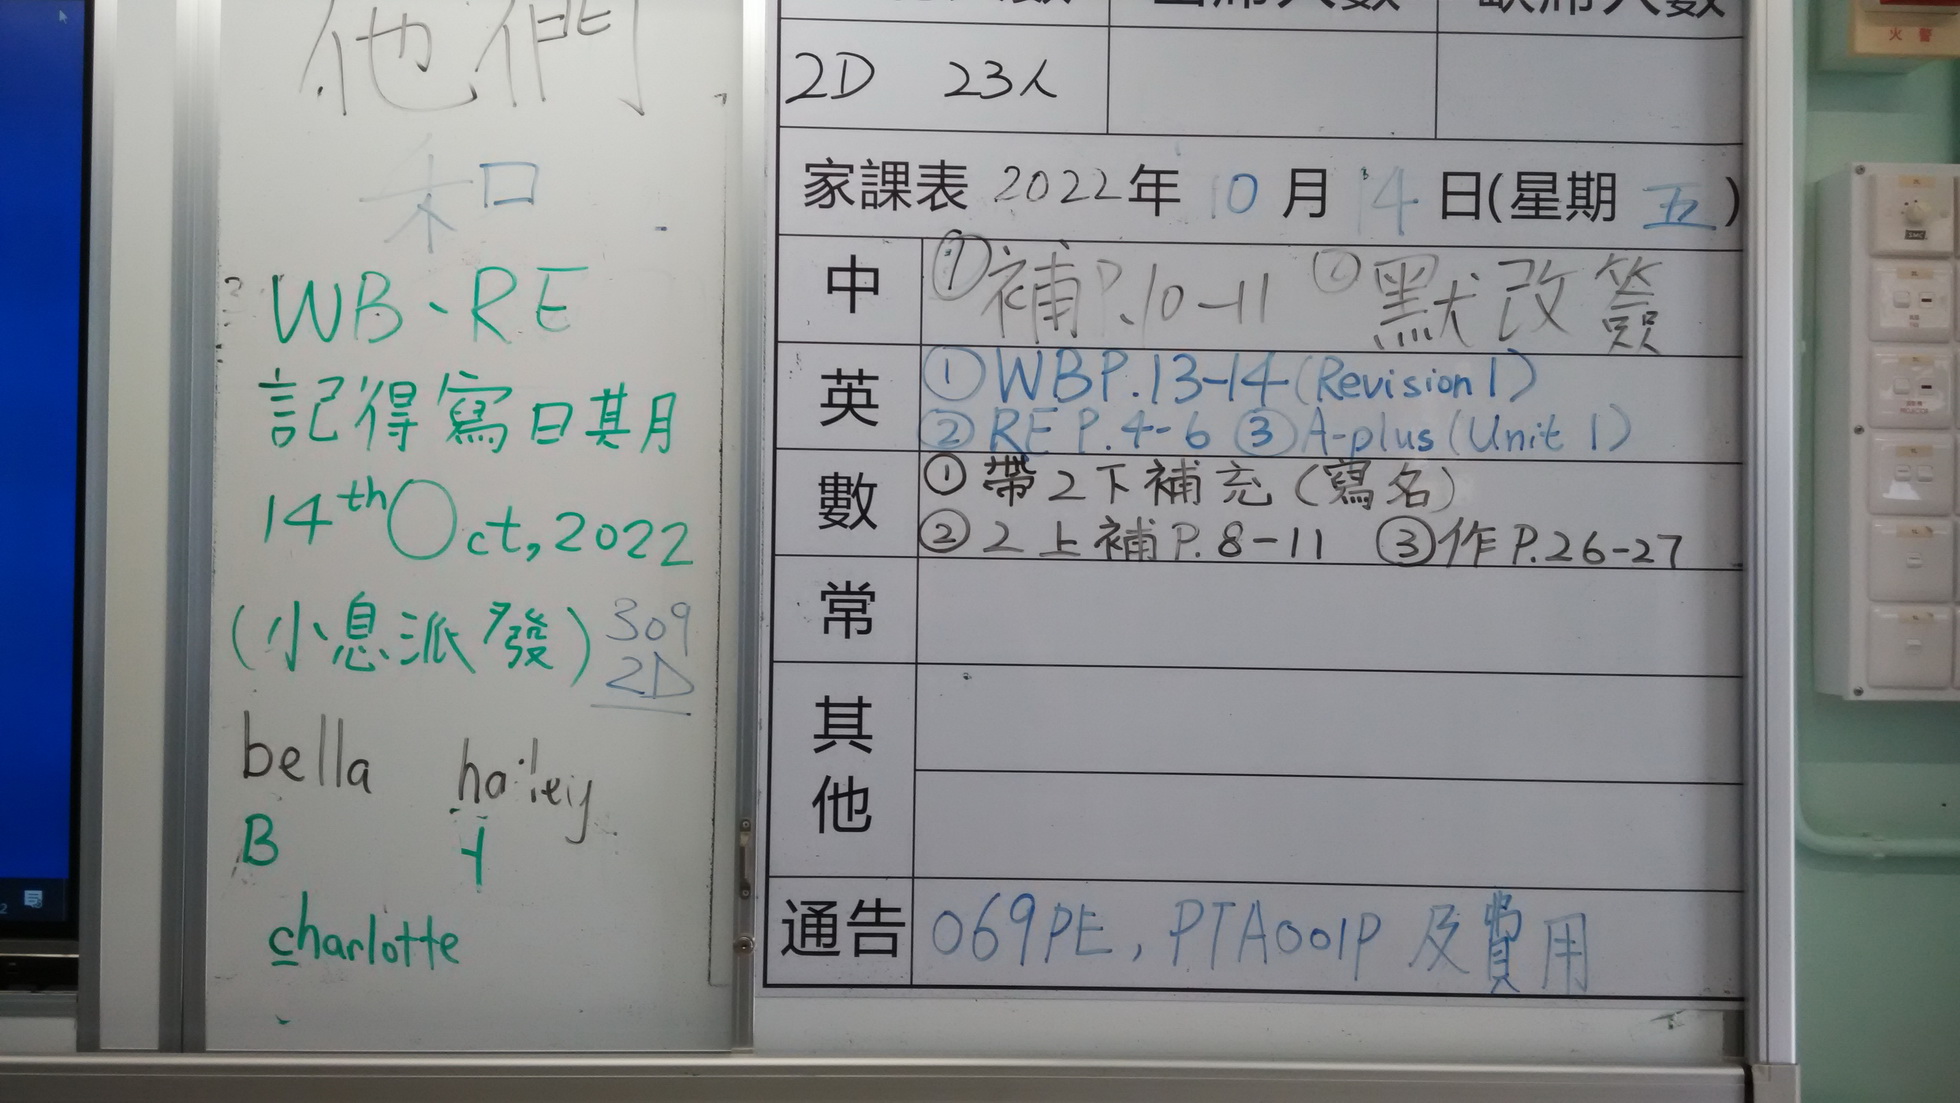 他們
和
WB、RE
記得寫日期
14th Oct, 2022
(小息派發) 309
2D
bella hailey
B y
charlotte
出席人數 缺席人數
2D 23人
家課表 2022年 10月 14日(星期五)
中 ①補P.10-11 ②默改簽
英 ①WB P.13-14 (Revision 1)
②RE P.4-6 ③A-plus (Unit 1)
數 ①帶2下補充(寫名)
②2上補P.8-11 ③作P.26-27
常
其他
通告 069PE, PTA001P 及費用
火警